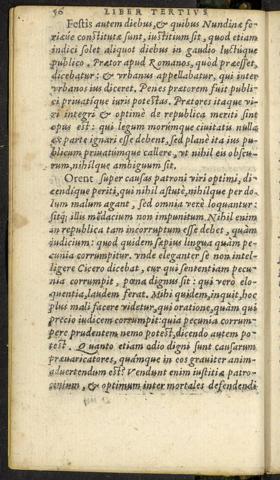 56 LIBER TERTIVS
Festis autem diebus, & quibus Nundinæ fe-
riæue constitutæ sunt, iustitium sit, quod etiam
indici solet aliquot diebus in gaudio luctuque
publico. Prætor apud Romanos, quod præesset,
dicebatur: & vrbanus appellabatur, qui inter
vrbanos ius diceret. Penes prætorem fuit publi-
ci priuatique iuris potestas. Prætores itaque vi-
ri integri & optimè de republica meriti sint
opus est: qui legum morúmque ciuitatu nulla
ex parte ignari esse debent, sed planè ita ius pu-
blicum priuatúmque callere, vt nihil eis obscu-
rum, nihílque ambiguum sit.
Orent super causas patroni viri optimi, di-
cendique periti, qui nihil astutè, nihílque per do-
lum malum agant, sed omnia verè loquantur:
sitq; illis mẽdacium non impunitum. Nihil enim
in republica tam incorruptum esse debet, quàm
iudicium: quod quidem sæpius lingua quàm pe-
cunia corrumpitur. vnde eleganter se non intel-
ligere Cicero dicebat, cur qui sententiam pecu-
nia corrumpit, pœna dignus sit: qui verò elo-
quentia, laudem ferat. Mihi quidem, inquit, hoc
plus mali facere videtur, qui oratione, quàm qui
precio iudicem corrumpit: quia pecunia corrum-
pere prudentem nemo potest, dicendo autem po-
test. Quanto etiam odio digni sunt causarum
præuaricatores, quámque in eos grauiter anim-
aduertendum est? Vendunt enim iustitiæ patro-
cinium, & optimum inter mortales defendendi